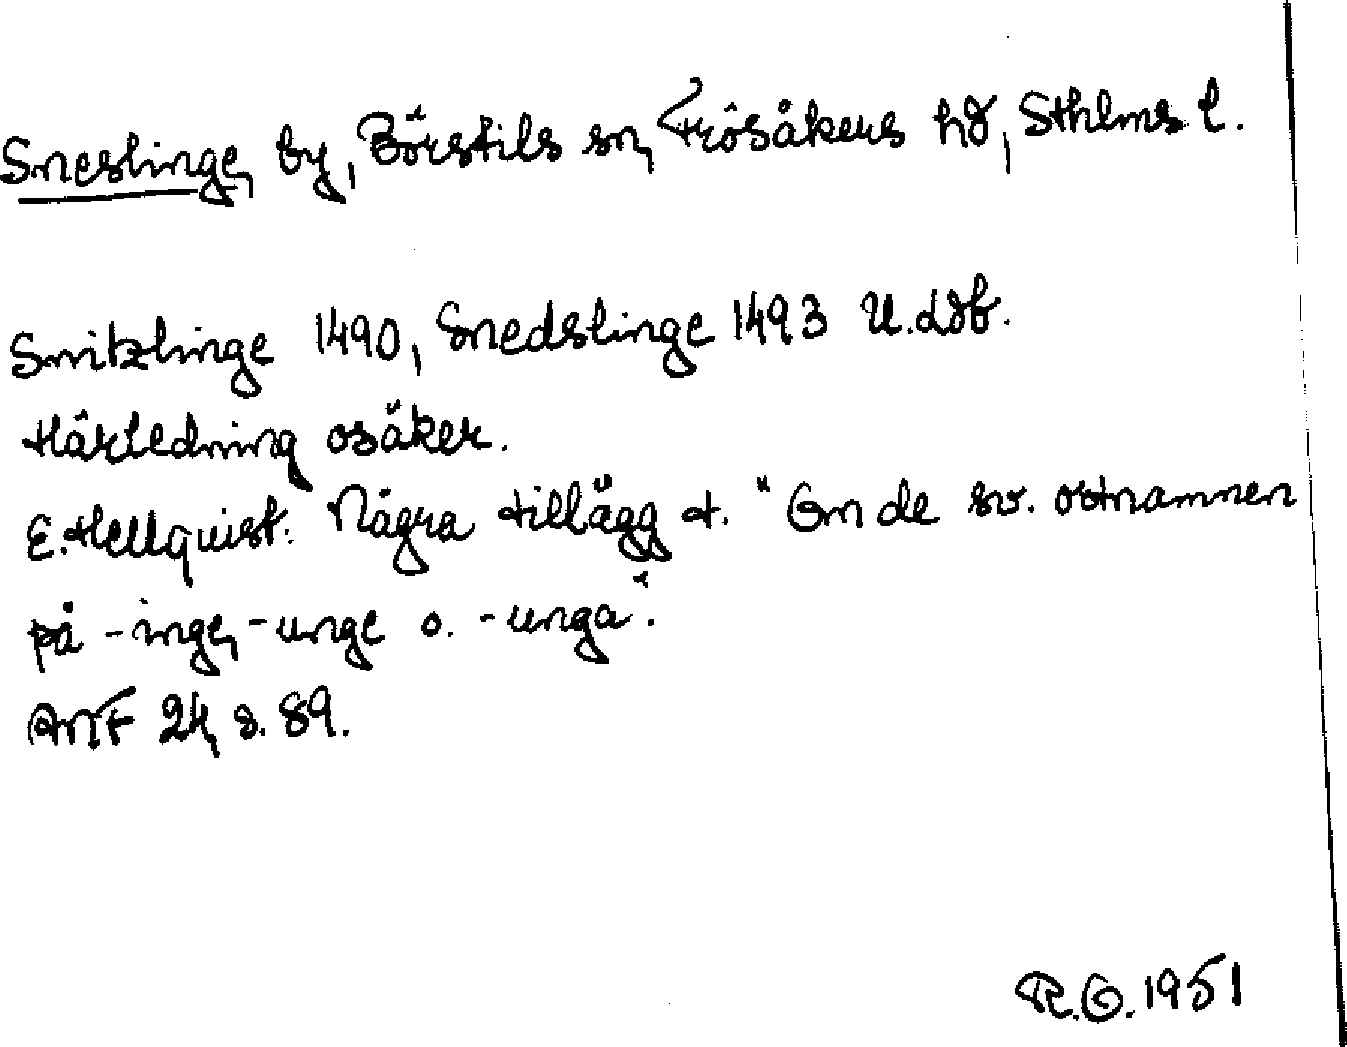 Sneslinge, by, Börstils sn, Frösåkers hd, Sthlms l.
Snitzlinge 1490, Snedslinge 1493 U.dsb.
Härledning osäker.
E. Hellquist: Några tillägg t. "Om de sv. ortnamnen
på -inge, -unge o. -unga".
ANF 24, s. 89.
R.O. 1951